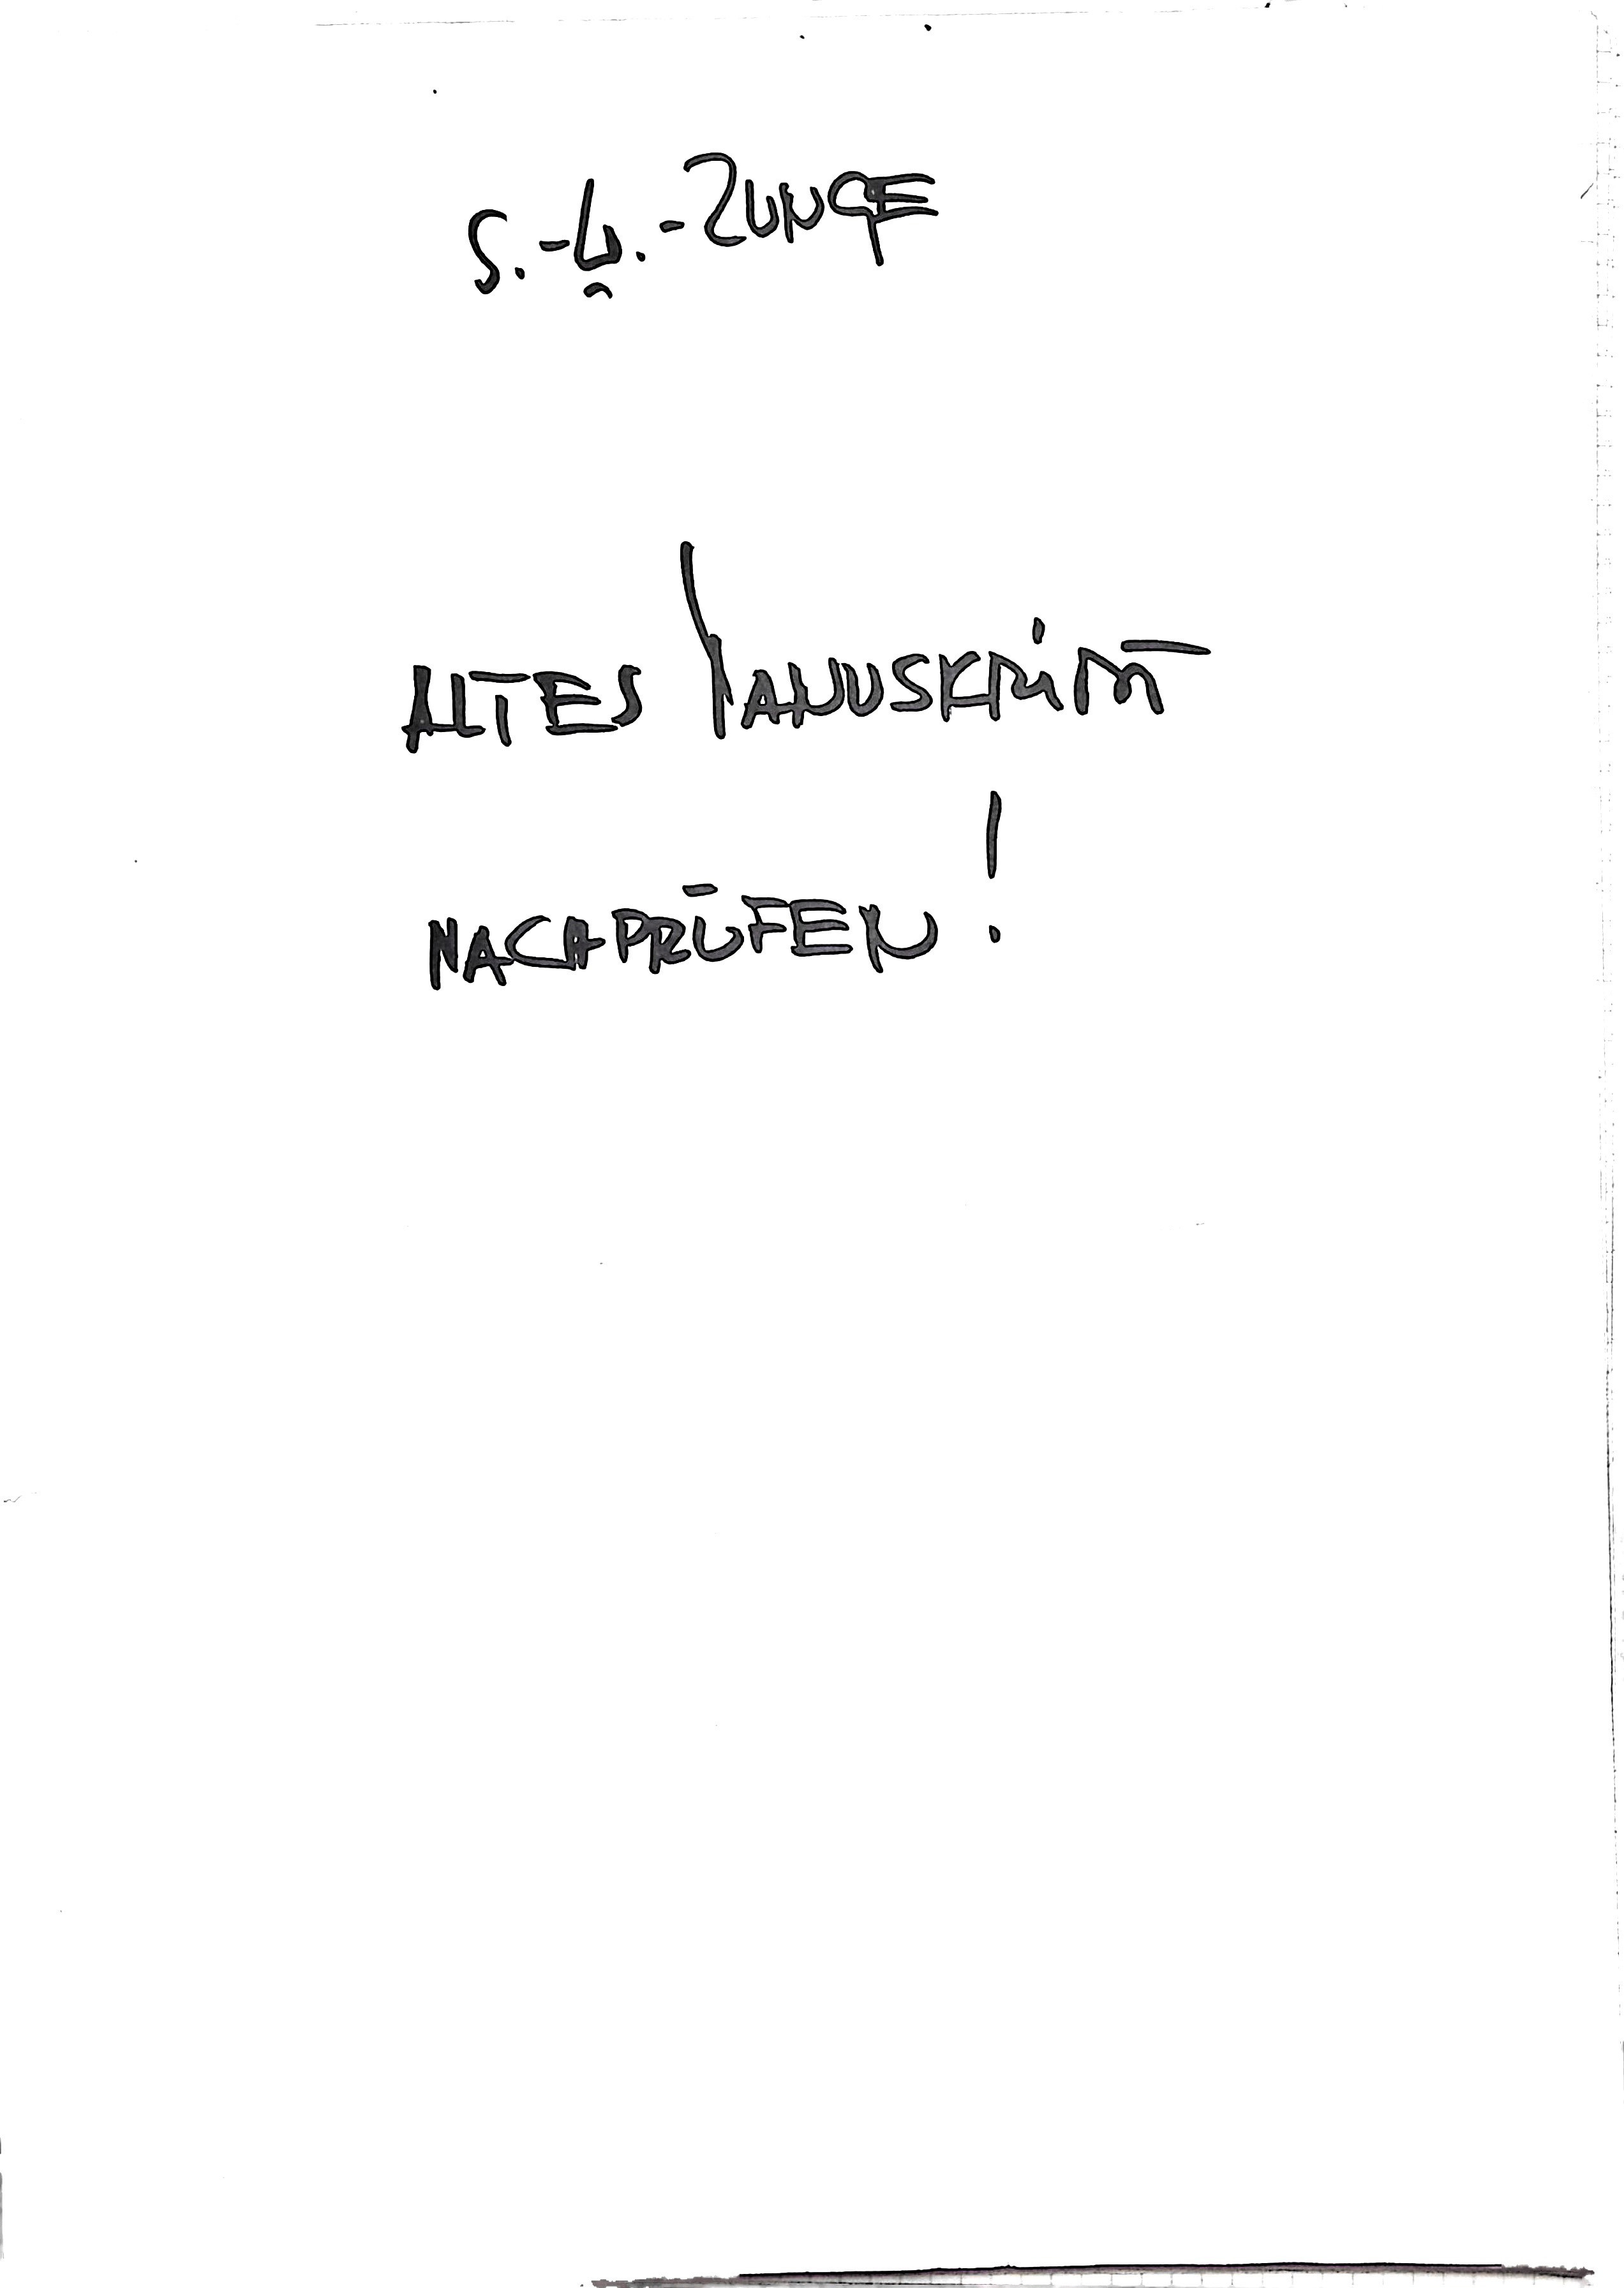 S.-ḫ.-ZUNGE
ALTES MANUSKRIPT
NACHPRŪFEN!